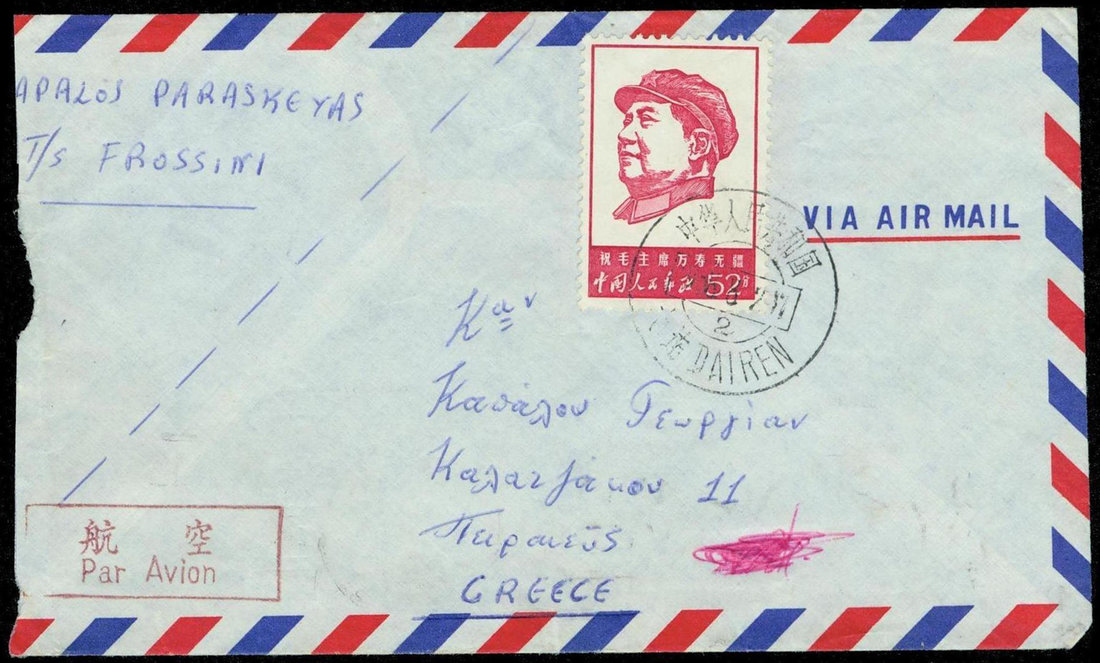 APALOS PARASKEVAS
T/S FROSSINI
VIA AIR MAIL
祝毛主席万寿无疆
中国人民邮政 52分
中华人民共和国
2
DAIREN
Καν
Καπάλου Γεωργίαν
Καλατζάκου 11
Πειραιεύς
GREECE
航空
Par Avion